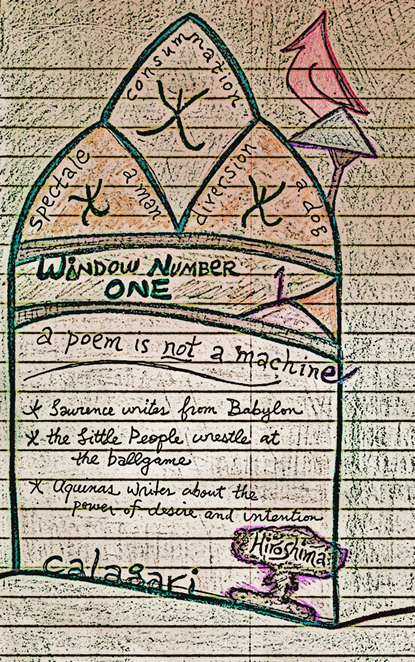 consummation
spectale
a man
diversion
a dog
WINDOW NUMBER
ONE
a poem is not a machine
Lawrence writes from Babylon
the Little People wrestle at
the ballgame
Aquinas writes about the
power of desire and intention
Hiroshima
calagari